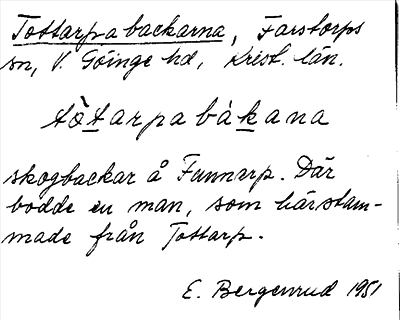 Tottarpabackarna, Farstorps
sn, V. Göinge hd, Krist. län.
tòtarpabákana
skogbackar å Funnrp. Där
bodde en man, som härstam-
made från Tottarp.
E. Bergenrud 1951